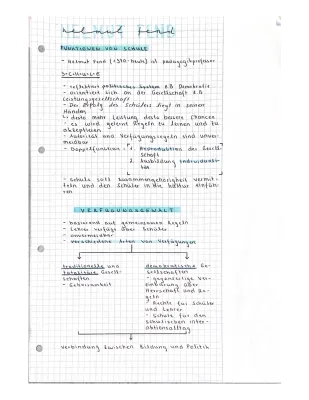 Helmut Fend
FUNKTIONEN VON SCHULE
- Helmut Fend (1940-heute) ist pädagogikprofessor
- reflektiert politisches System z.B. Demokratie
- orientiert sich an der Gesellschaft z.B.
Leistungsgesellschaft
- Der Erfolg des Schülers liegt in seinen
Händen
↳ desto mehr Leistung desto bessere Chancen
- es wird gelernt Regeln zu lernen und zu
akzeptieren
- Autorität und Verfügungsregeln sind unver-
meidbar
- Doppelfunktion: 1. Reproduktion der Gesell-
schaft
2. Ausbildung Individualitä-
ten
- Schule soll Zusammengehörigkeit vermit-
teln und den Schüler in die Kultur einfüh-
ren
VERFÜGUNGSGEWALT
- basierend auf gemeinsamen Regeln
- Lehrer verfügt über Schüler
- unvermeidbar
- verschiedene Arten von Verfügungen
traditionelle und
totalitäre Gesell-
schaften
- Gehorsamkeit
demokratische Ge-
sellschaften
- gegenseitige Ver-
einbarung über
Herrschaft und Re-
geln
- Rechte für Schüler
und Lehrer
- Schutz für den
schulischen Inter-
aktionsalltag
Verbindung zwischen Bildung und Politik